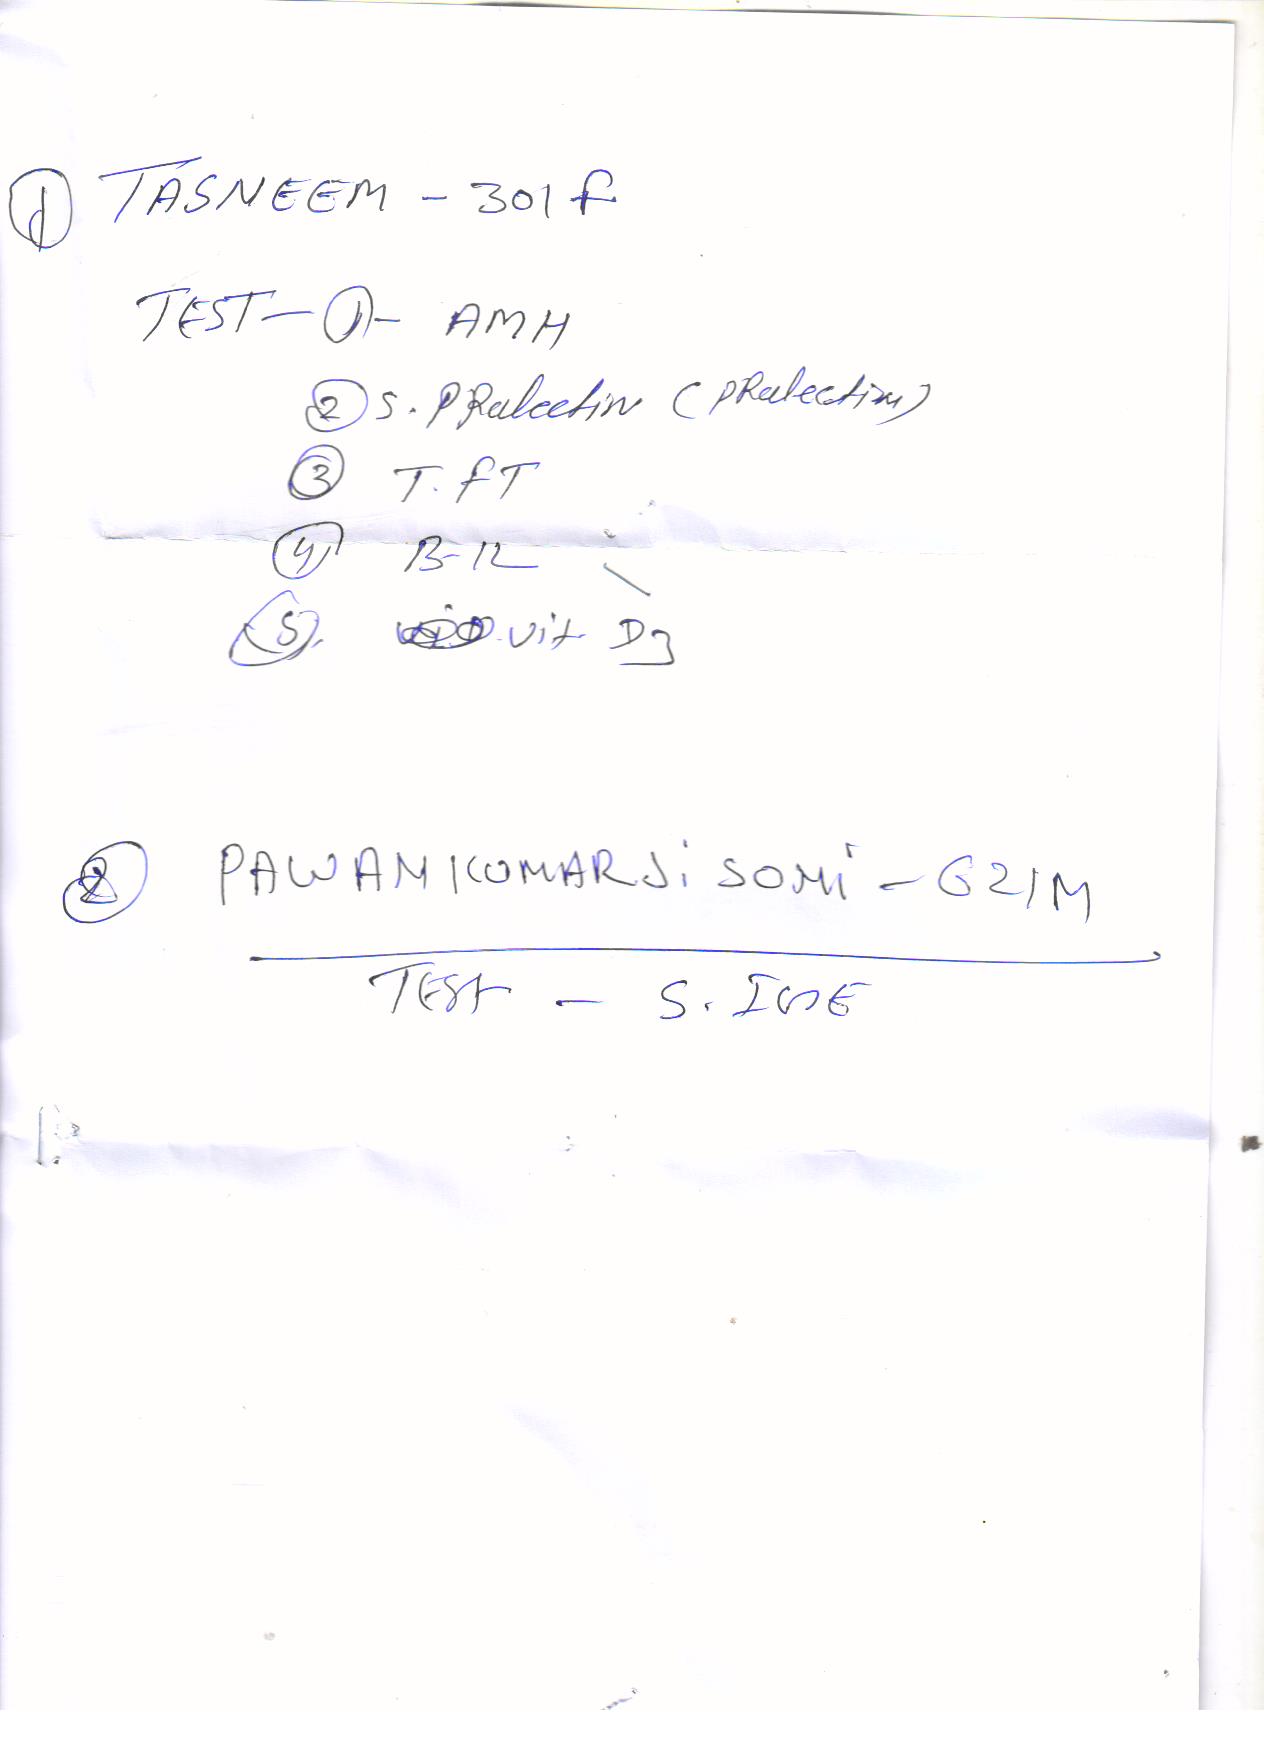 ① TASNEEM - 30/F
TEST - ① - AMH
② S. PRalectin (PRalectin)
③ T.FT
④ B-12
⑤. vit D3
② PAWANKUMARJi SONi - 62/M
TEST - S. IGE